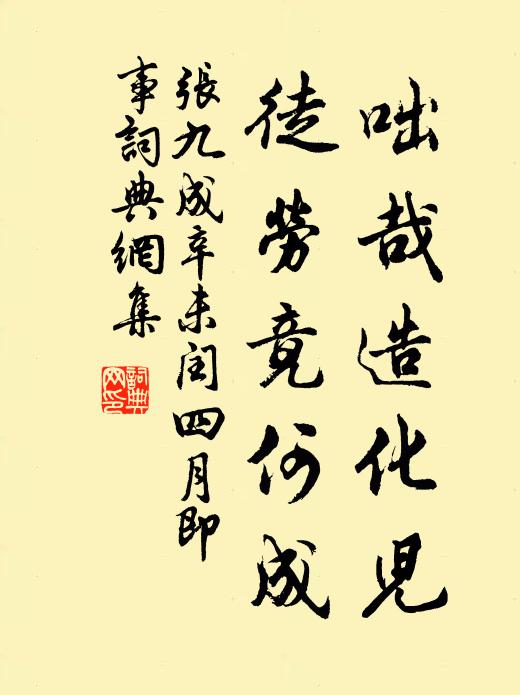 咄哉造化兒
徒勞竟何成
張九成辛未閏四月即
事詞典網集
詞典
网印